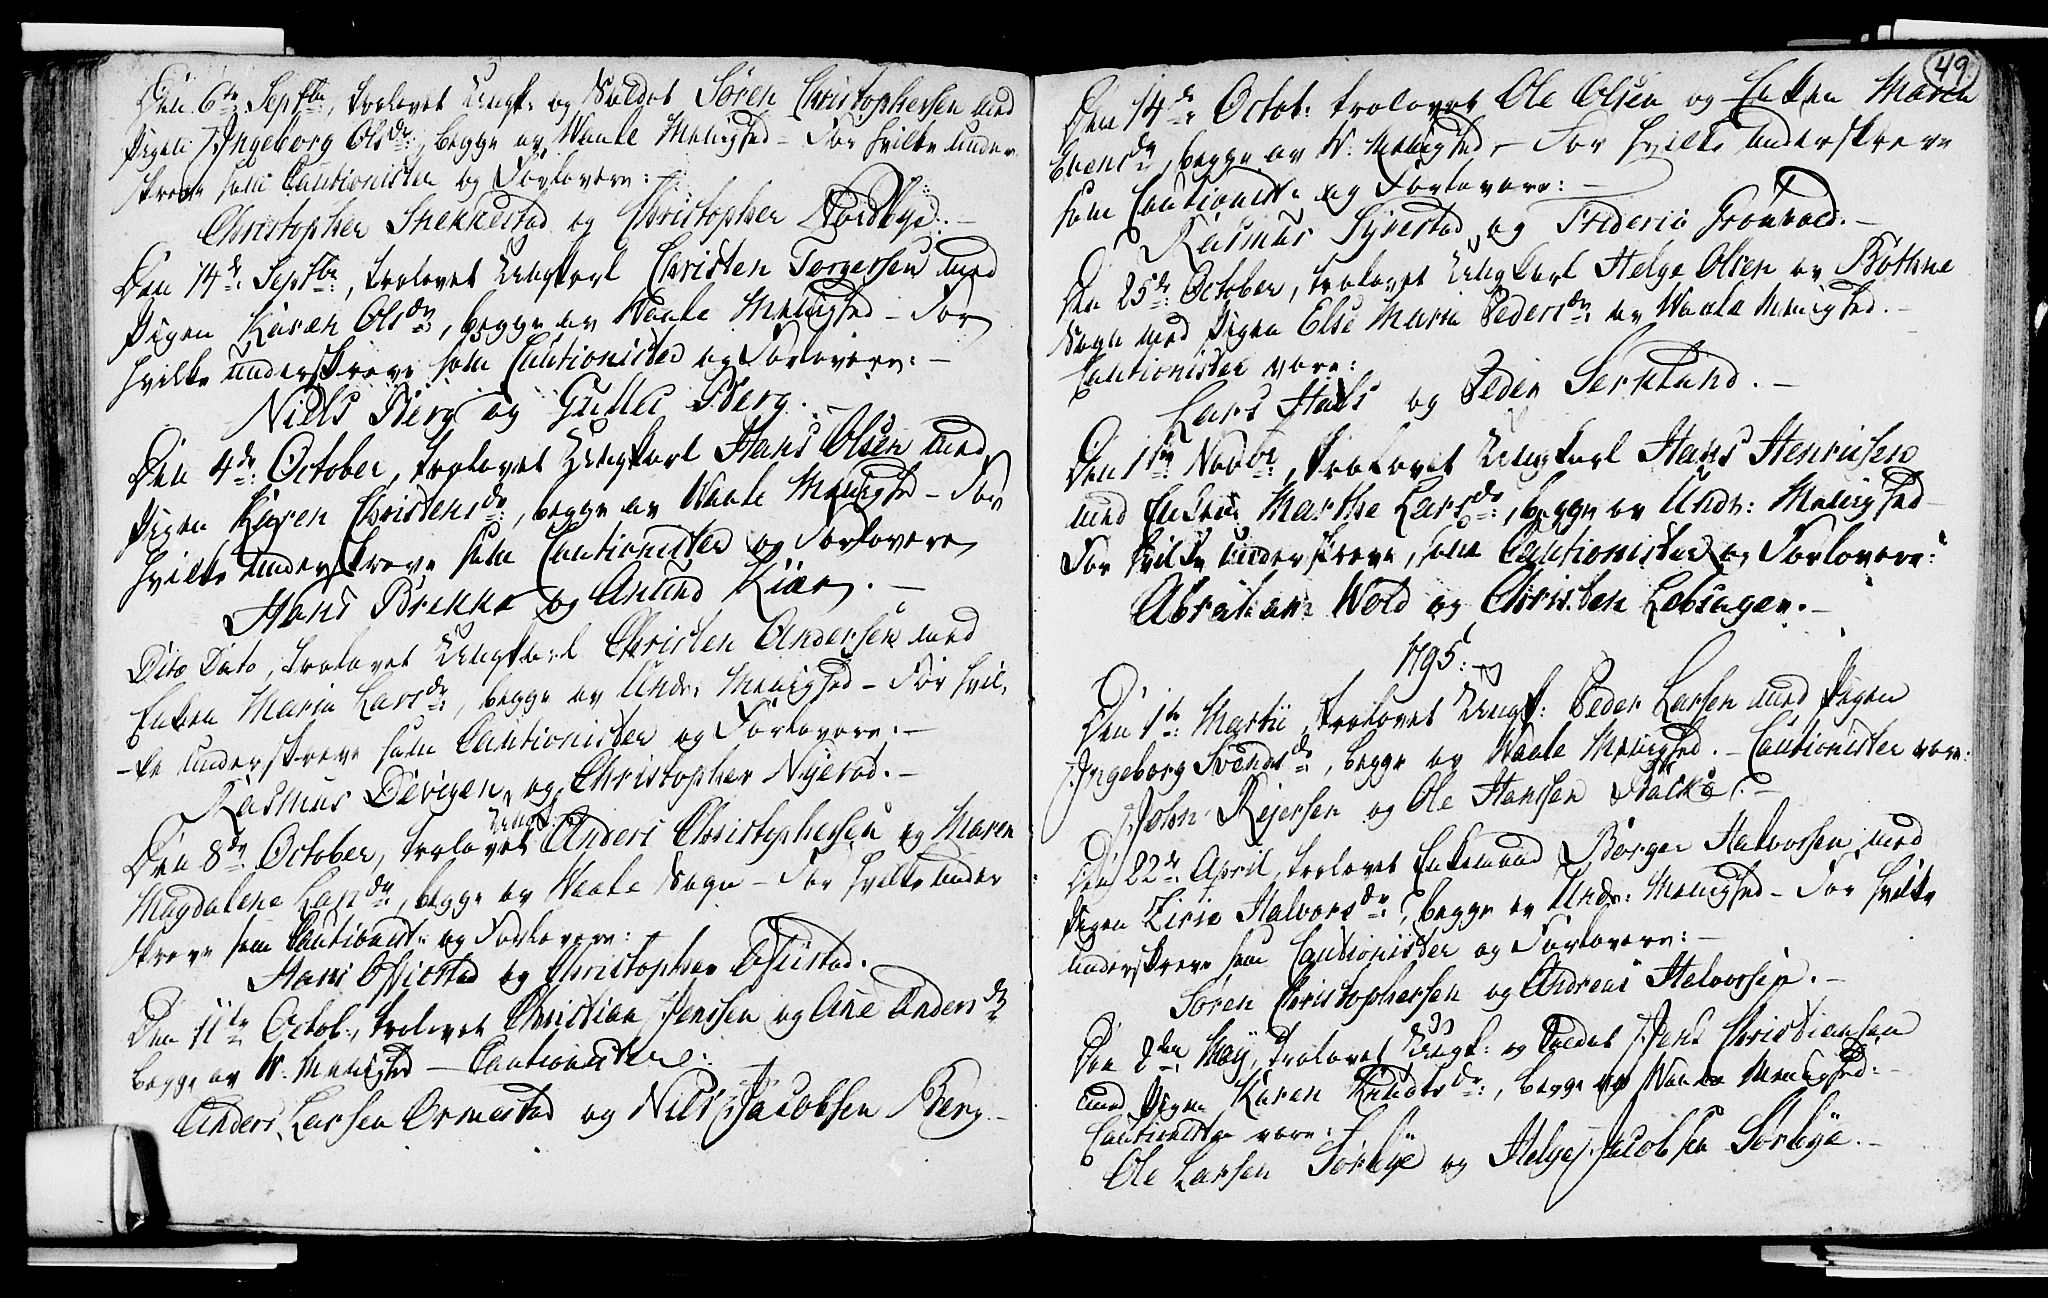 Den 6te Septbr, trolovet Ungk. og Soldat Søren Christophersen med
Pigen Ingeborg Olsdr, begge av Waale Menighed - For hvilke under
skreve som Cautionister og Forlovere:
Christopher Snekkestad og Christopher Nordbye.
Den 14de Septbr, trolovet Ungkarl Christen Torgersen med
Pigen Karen Olsdr, begge av Waale Menighed - For
hvilke underskreve som Cautionister og Forlovere:
Niels Berg og Gullec Berg.
Den 4de October, trolovet Ungkarl Hans Olsen med
Pigen Karen Christensdr, begge av Waale Menighed - For
hvilke underskreve som Cautionister og Forlovere
Hans Brekke og Anund Kiær.
Dito Dato, trolovet Ungkarl Christen Andersen med
Enken Maria Larsdr, begge av Undr: Menighed - For hvil-
-ke underskreve som Cautionister og Forlovere:
Rasmus Devigen og Christopher Nyerød.
Ungk:
Den 8de October, trolovet Anders Christophersen og Maren
Magdalene Larsdr, begge av Waale Sogn - For hvilke under
skreve som Cautionist: og Forlovere:
Hans og Christopher
Den 11te Octob:, trolovet Christian Jenssen og Ane Andersdr
begge av W. Menighed - Cautionister:
Anders Larsen Ormestad og Niels Jacobsen Berg.
49
Den 14de Octob: trolovet Ole Olsen og Enken Maren
Evensdr, begge av W. Menighed - For hvilke underskreve
som Cautionist: og Forlovere:
Rasmus Syrestad og Frideric Grønvold.
Den 25de October, trolovet Ungkarl Helge Olsen av Bothne
Sogn med Pigen Else Maria Pedersdr av Waale Menighed.
Cautionister vare:
Lars Hals og Peder Serklund.
Den 1te Novbr, trolovet Ungkarl Hans Henricsen
med Enken Marthe Larsdr, begge av Undr: Menighed
For hvilke underskreve, som Cautionister og Forlovere:
Abraham Wold og Christen Løbsagen.
1795:
Den 1te Martii, trolovet Ungk: Peder Larsen med Pigen
Ingeborg Svendsdr, begge av Waale Menighed. - Cautionister vare:
John Rejersen og Ole Hanssen
Den 22de April, trolovet Enkemand Børger Halvorsen med
Pigen Zirie Halvorsdr, begge av Undr: Menighed - For hvilke
underskreve som Cautionister og Forlovere:
Søren Christophersen og Andreas Halvorsen.
Den 2den Maij, trolovet Ungk: og Soldat Jens Christiansen
med Pigen Karen Knudsdr, begge av Waale Menighed.
Cautionister vare:
Ole Larsen Sørbye og Helge Jacobsen Sørbye.